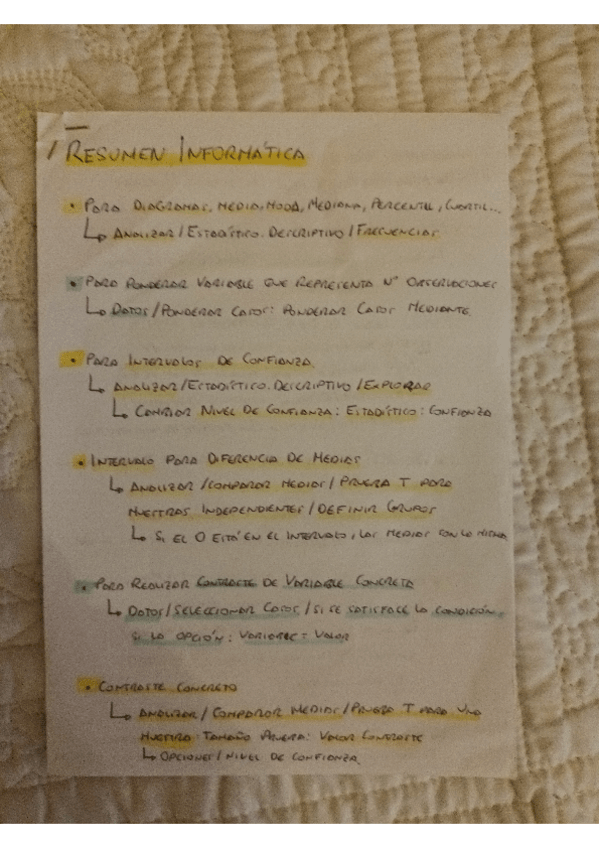 RESUMEN INFORMÁTICA
• PARA DIAGRAMAS, MEDIA, MODA, MEDIANA, PERCENTIL, CUARTIL...
↳ ANALIZAR / ESTADÍSTICO. DESCRIPTIVO / FRECUENCIAS
• PARA PONDERAR VARIABLE QUE REPRESENTA Nº OBSERVACIONES
↳ DATOS / PONDERAR CASOS: PONDERAR CASOS MEDIANTE
• PARA INTERVALOS DE CONFIANZA
↳ ANALIZAR / ESTADÍSTICO. DESCRIPTIVO / EXPLORAR
↳ CAMBIAR NIVEL DE CONFIANZA: ESTADÍSTICO: CONFIANZA
• INTERVALO PARA DIFERENCIA DE MEDIAS
↳ ANALIZAR / COMPARAR MEDIAS / PRUEBA T PARA
MUESTRAS INDEPENDIENTES / DEFINIR GRUPOS
↳ SI EL 0 ESTÁ EN EL INTERVALO, LAS MEDIAS SON LA MISMA
• PARA REALIZAR CONTRASTE DE VARIABLE CONCRETA
↳ DATOS / SELECCIONAR CASOS / SI SE SATISFACE LA CONDICIÓN.
SI LA OPCIÓN: VARIABLE = VALOR
• CONTRASTE CONCRETO
↳ ANALIZAR / COMPARAR MEDIAS / PRUEBA T PARA UNA
MUESTRA: TAMAÑO PRUEBA: VALOR CONTRASTE
↳ OPCIONES / NIVEL DE CONFIANZA